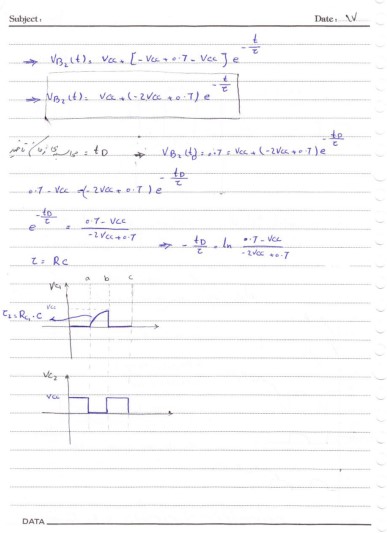 Subject:
Date: ۱۷
⇒ VB₂(t): Vcc + [-Vcc + 0.7 - Vcc] e^(-t/τ)
⇒ VB₂(t): Vcc + (-2Vcc + 0.7) e^(-t/τ)
= tD ⇒ VB₂(t) = 0.7 = Vcc + (-2Vcc + 0.7) e^(-tD/τ)
0.7 - Vcc = (-2Vcc + 0.7) e^(-tD/τ)
e^(-tD/τ) = (0.7 - Vcc)/(-2Vcc + 0.7) ⇒ -tD/τ = ln (0.7 - Vcc)/(-2Vcc + 0.7)
τ = RC
a b c
Vc₁
Vcc
τ₂ = Rc₁ · C
Vc₂
Vcc
DATA